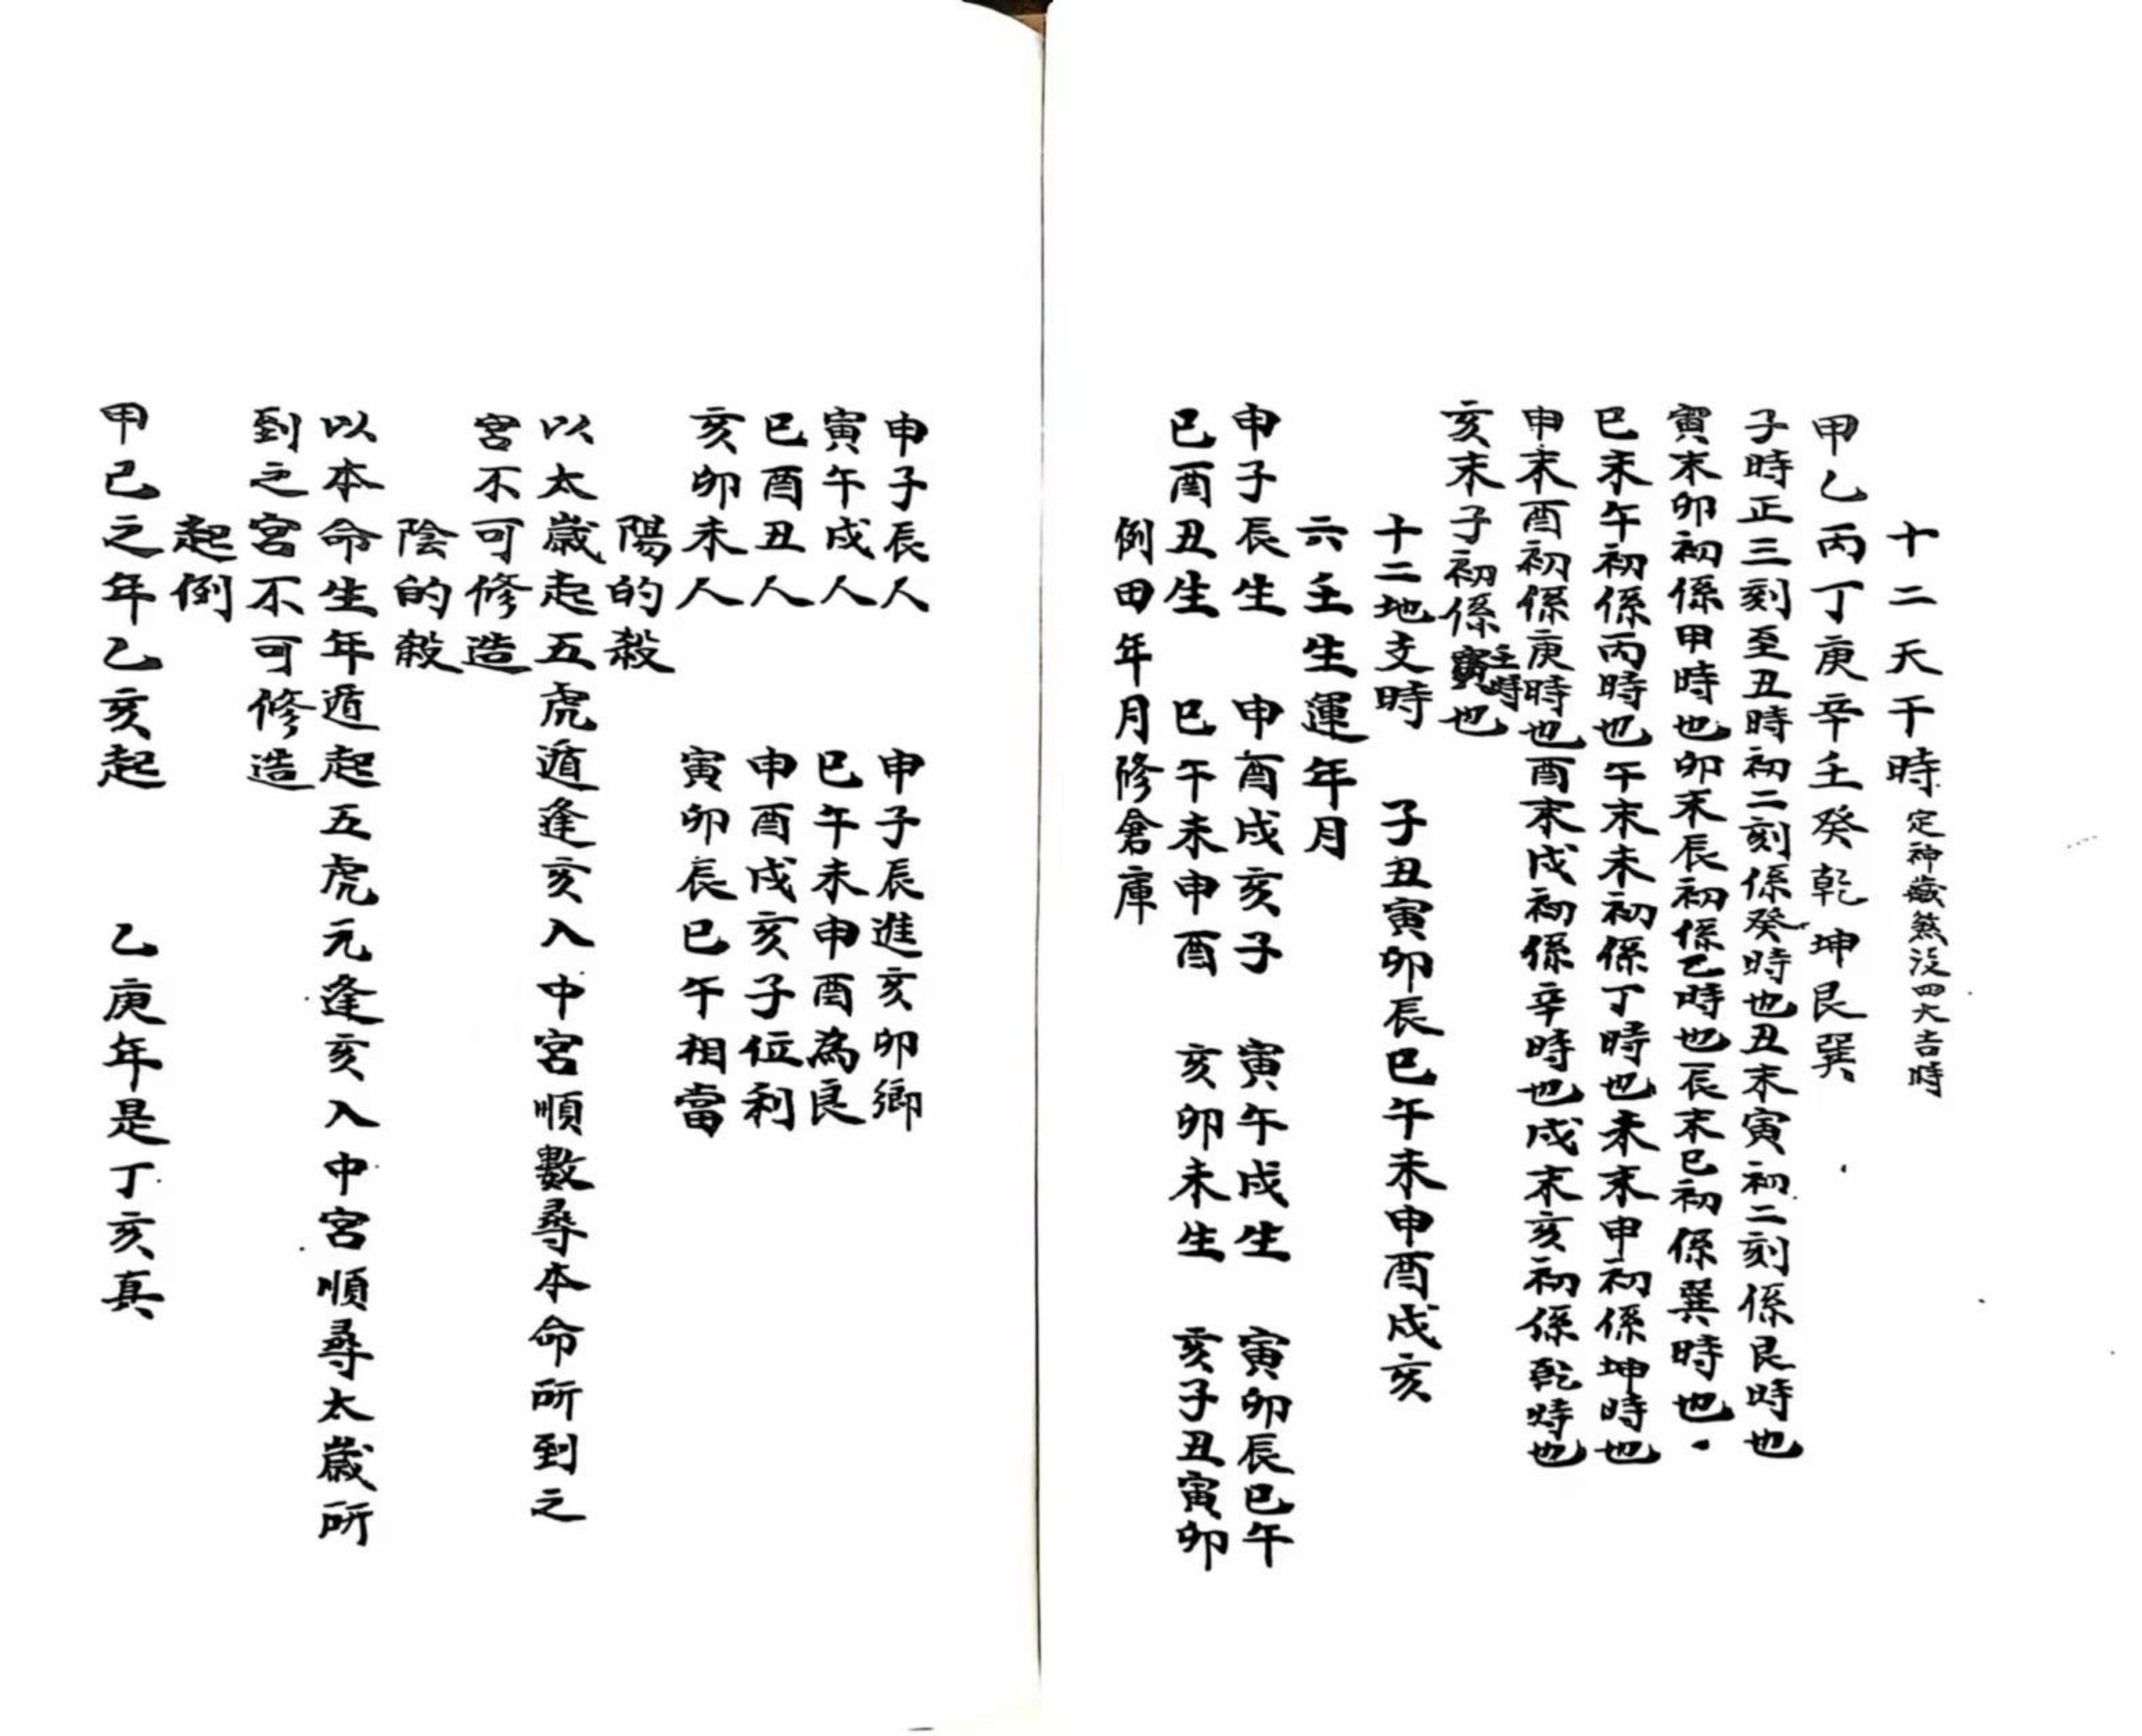 十二天干時 定神藏煞沒四大吉時
甲乙丙丁庚辛壬癸乾坤艮巽
子時正三刻至丑時初二刻係癸時也丑末寅初二刻係艮時也
寅末卯初係甲時也卯末辰初係乙時也辰末巳初係巽時也
巳末午初係丙時也午末未初係丁時也未末申初係坤時也
申末酉初係庚時也酉末戌初係辛時也戌末亥初係乾時也
亥末子初係壬時也
十二地支時 子丑寅卯辰巳午未申酉戌亥
六壬生運年月
申子辰生 申酉戌亥子 寅午戌生 寅卯辰巳午
巳酉丑生 巳午未申酉 亥卯未生 亥子丑寅卯
例田年月修倉庫
申子辰人 申子辰進亥卯鄉
寅午戌人 巳午未申酉為良
巳酉丑人 申酉戌亥子位利
亥卯未人 寅卯辰巳午相當
陽的殺
以太歲起五虎遁逢亥入中宮順數尋本命所到之
宮不可修造
陰的殺
以本命生年遁起五虎元逢亥入中宮順尋太歲所
到之宮不可修造
起例
甲己之年乙亥起 乙庚年是丁亥真